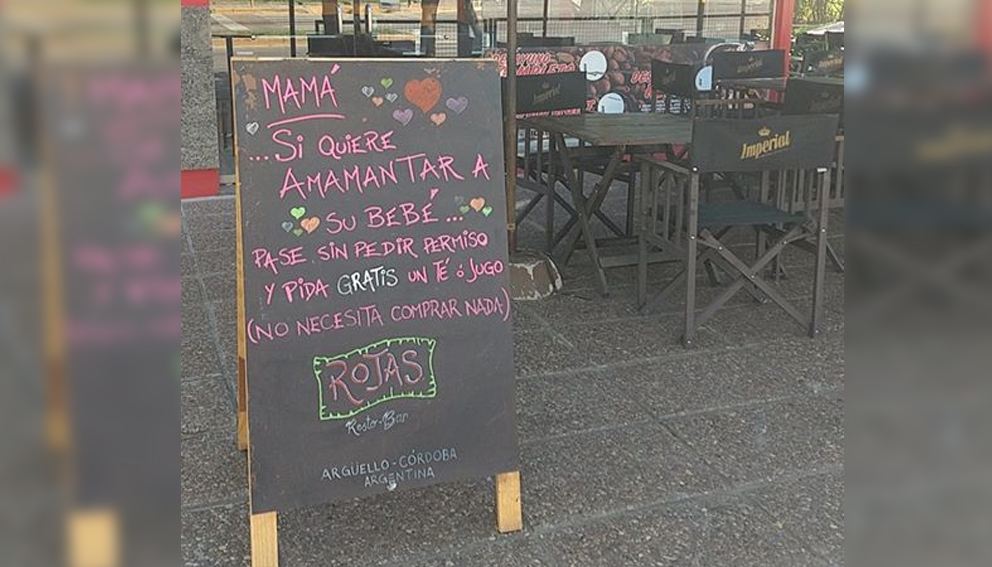 MAMÁ
...SI QUIERE
AMAMANTAR A
SU BEBÉ...
PASE SIN PEDIR PERMISO
Y PIDA GRATIS UN TÉ ó JUGO
(NO NECESITA COMPRAR NADA)
ROJAS
Resto-Bar
ARGÜELLO-CÓRDOBA
ARGENTINA
Imperial
Imperial